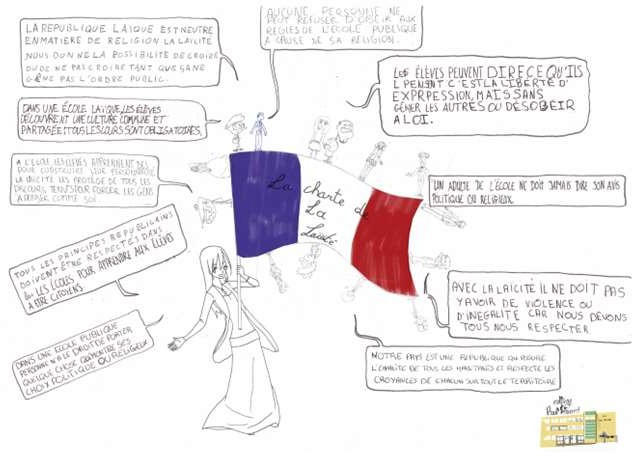 LA REPUBLIQUE LAIQUE EST NEUTRE
EN MATIERE DE RELIGION LA LAICITE
NOUS DONNE LA POSSIBILITE DE CROIRE
OU DE NE PAS CROIRE TANT QUE ÇA NE
GÊNE PAS L'ORDRE PUBLIC.
AUCUNE PERSONNE NE
PEUT REFUSER D'OBEIR AUX
REGLES DE L'ECOLE PUBLIQUE
A CAUSE DE SA RELIGION.
LES ÉLÈVES PEUVENT DIRE CE QU'ILS
PENSENT C'EST LA LIBERTÉ D'
EXPRPESSION, MAIS SANS
GÊNER LES AUTRES OU DÉSOBEIR
A LOI.
DANS UNE ÉCOLE LAIQUE, LES ÉLÈVES
DÉCOUVRENT UNE CULTURE COMMUNE ET
PARTAGÉE TOUS LES COURS SONT OBLIGATOIRES.
A L'ECOLE, LES ELEVES APPRENNENT DES
POUR CONSTRUIRE LEUR PERSONNALITE
LA LAICITE LES PROTEGE DE TOUS LES
DISCOURS TENUS POUR FORCER LES GENS
A PENSER COMME SOI
UN ADULTE DE L'ÉCOLE NE DOIT JAMAIS DIRE SON AVIS
POLITIQUE OU RELIGIEUX.
La charte de
La
Laïcité
TOUS LES PRINCIPES REPUBLICAINS
DOIVENT ÊTRE RESPECTÉS DANS
LES ÉCOLES POUR APPRENDRE AUX ELÈVES
A ETRE CITOYENS
AVEC LA LAICITÉ IL NE DOIT PAS
Y AVOIR DE VIOLENCE OU
D'INEGALITE CAR NOUS DEVONS
TOUS NOUS RESPECTER
DANS UNE ÉCOLE PUBLIQUE
PERSONNE N'A LE DROIT DE PORTER
QUELQUE CHOSE QUI MONTRE SES
CHOIX POLITIQUE OU RELIGIEUX
NOTRE PAYS EST UNE REPUBLIQUE QUI ASSURE
L'EGALITE DE TOUS LES HABITANTS ET RESPECTE LES
CROYANCES DE CHACUN SUR TOUT LE TERRITOIRE